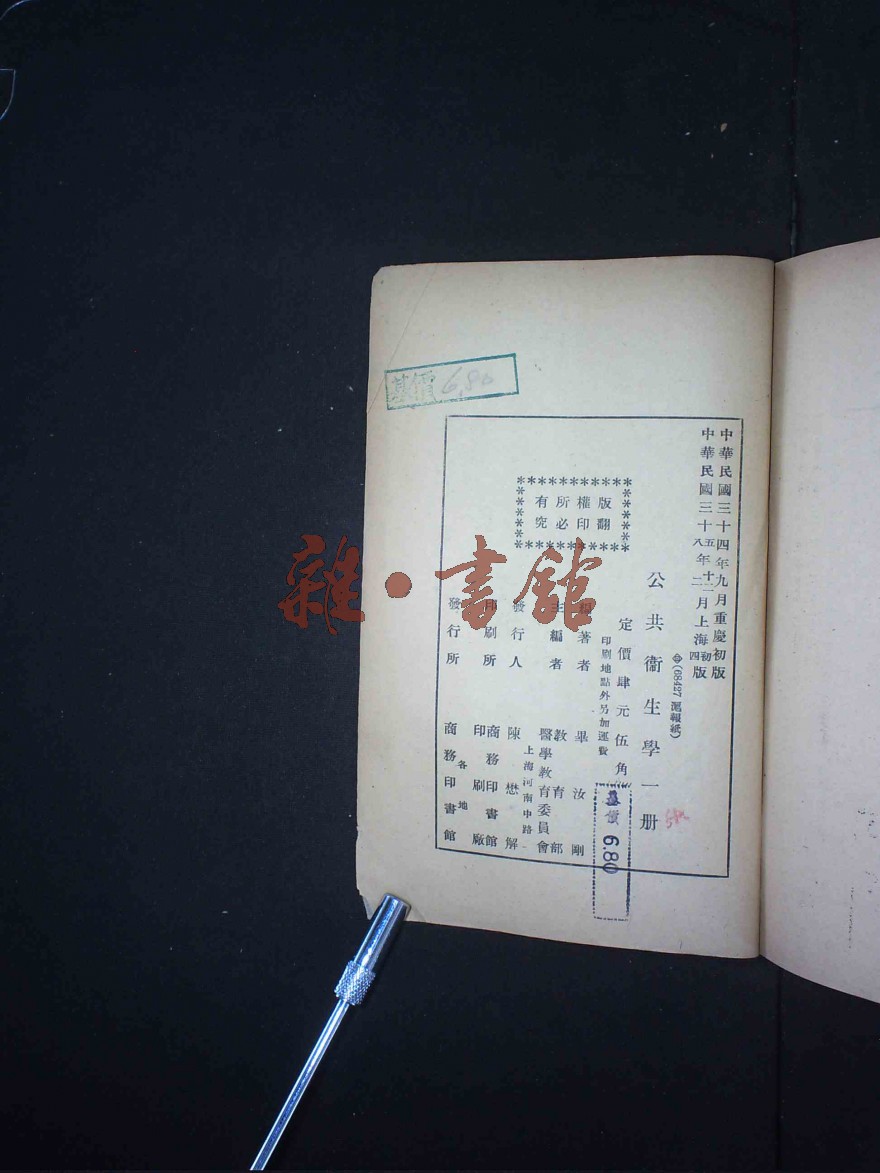 中華民國三十四年九月重慶初版
中華民國三十五年十二月上海初版
八 二 四
⊕(68427 滬報紙)
公共衞生學一册
定價肆元伍角
印刷地點外另加運費
版權所有
翻印必究
著者 畢汝剛
主編者 教育部
醫學教育委員會
上海河南中路
發行人 陳懋解
印刷所 商務印書館
印刷廠
各地
發行所 商務印書館
基價 6.80
價 6.80
雜·書館